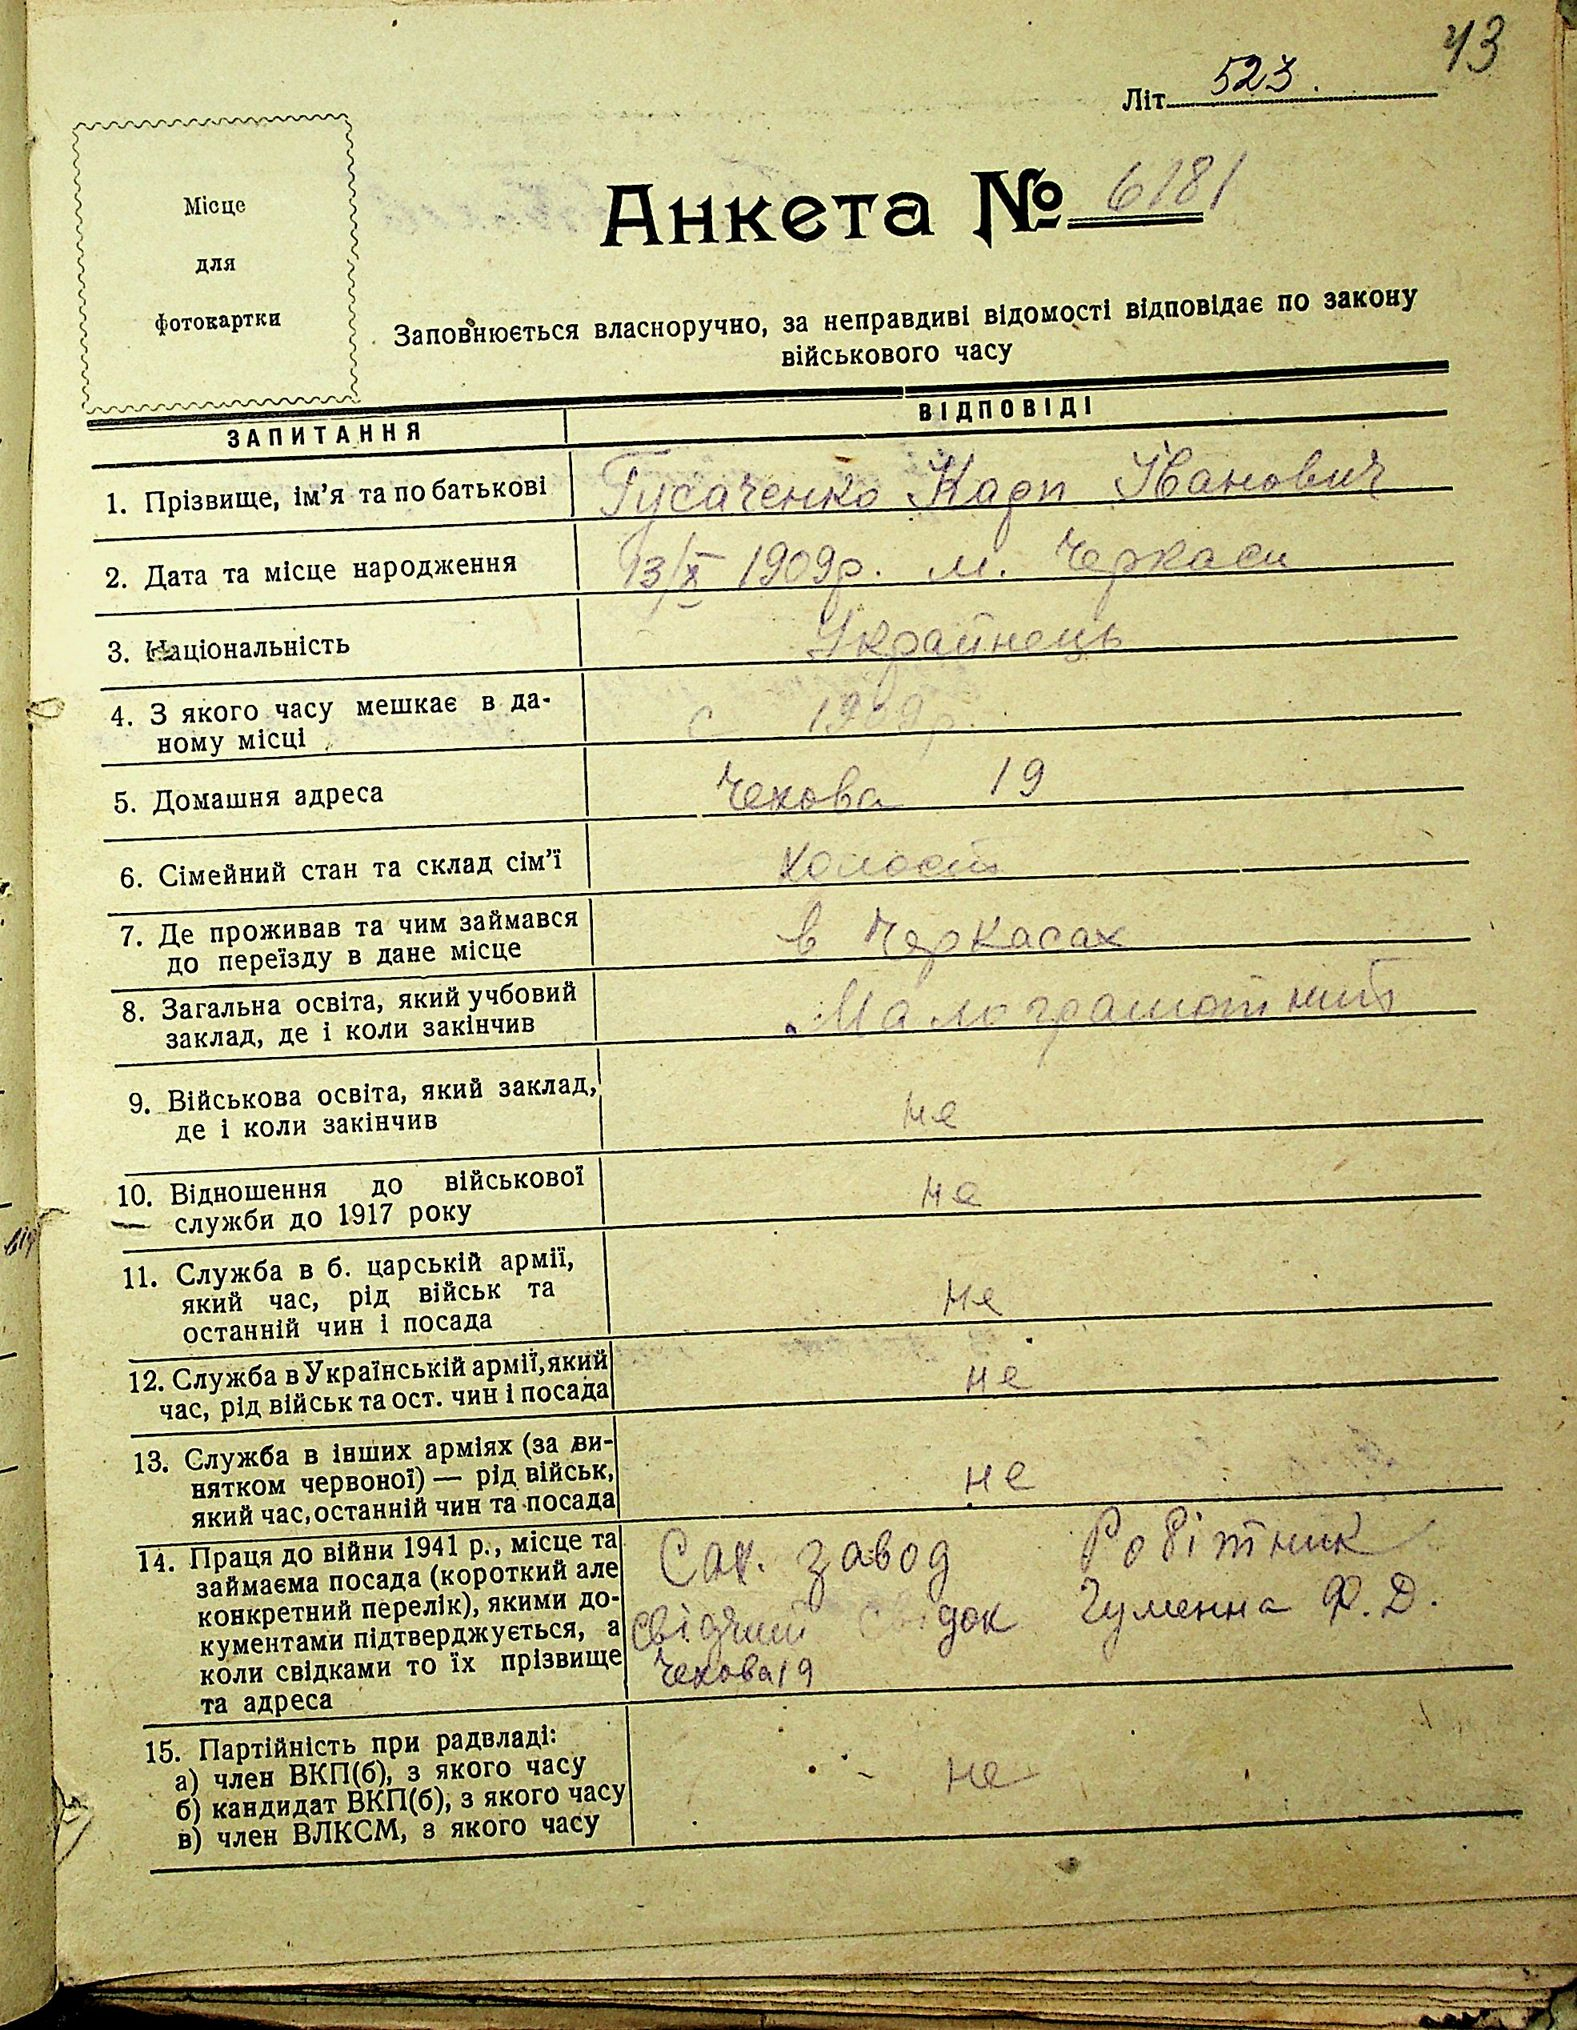 43
Літ 523.
Місце
для
фотокартки
Анкета № 6181
Заповнюється власноручно, за неправдиві відомості відповідає по закону
військового часу
ЗАПИТАННЯ
ВІДПОВІДІ
1. Прізвище, ім'я та по батькові
Гусаченко Карп Іванович
2. Дата та місце народження
13/X 1909р. м. Черкаси
3. Національність
Українець
4. З якого часу мешкає в да-
ному місці
с 1909р.
5. Домашня адреса
Чехова 19
6. Сімейний стан та склад сім'ї
холост
7. Де проживав та чим займався
до переїзду в дане місце
в Черкасах
8. Загальна освіта, який учбовий
заклад, де і коли закінчив
Малограмотний
9. Військова освіта, який заклад,
де і коли закінчив
не
10. Відношення до військової
служби до 1917 року
не
11. Служба в б. царській армії,
який час, рід військ та
останній чин і посада
не
12. Служба в Українській армії, який
час, рід військ та ост. чин і посада
не
13. Служба в інших арміях (за ви-
нятком червоної) — рід військ,
який час, останній чин та посада
не
14. Праця до війни 1941 р., місце та
займаєма посада (короткий але
конкретний перелік), якими до-
кументами підтверджується, а
коли свідками то їх прізвище
та адреса
Сах. завод Робітник
свідок Гуменна Ф. Д.
Чехова 19
15. Партійність при радвладі:
а) член ВКП(б), з якого часу
б) кандидат ВКП(б), з якого часу
в) член ВЛКСМ, з якого часу
не